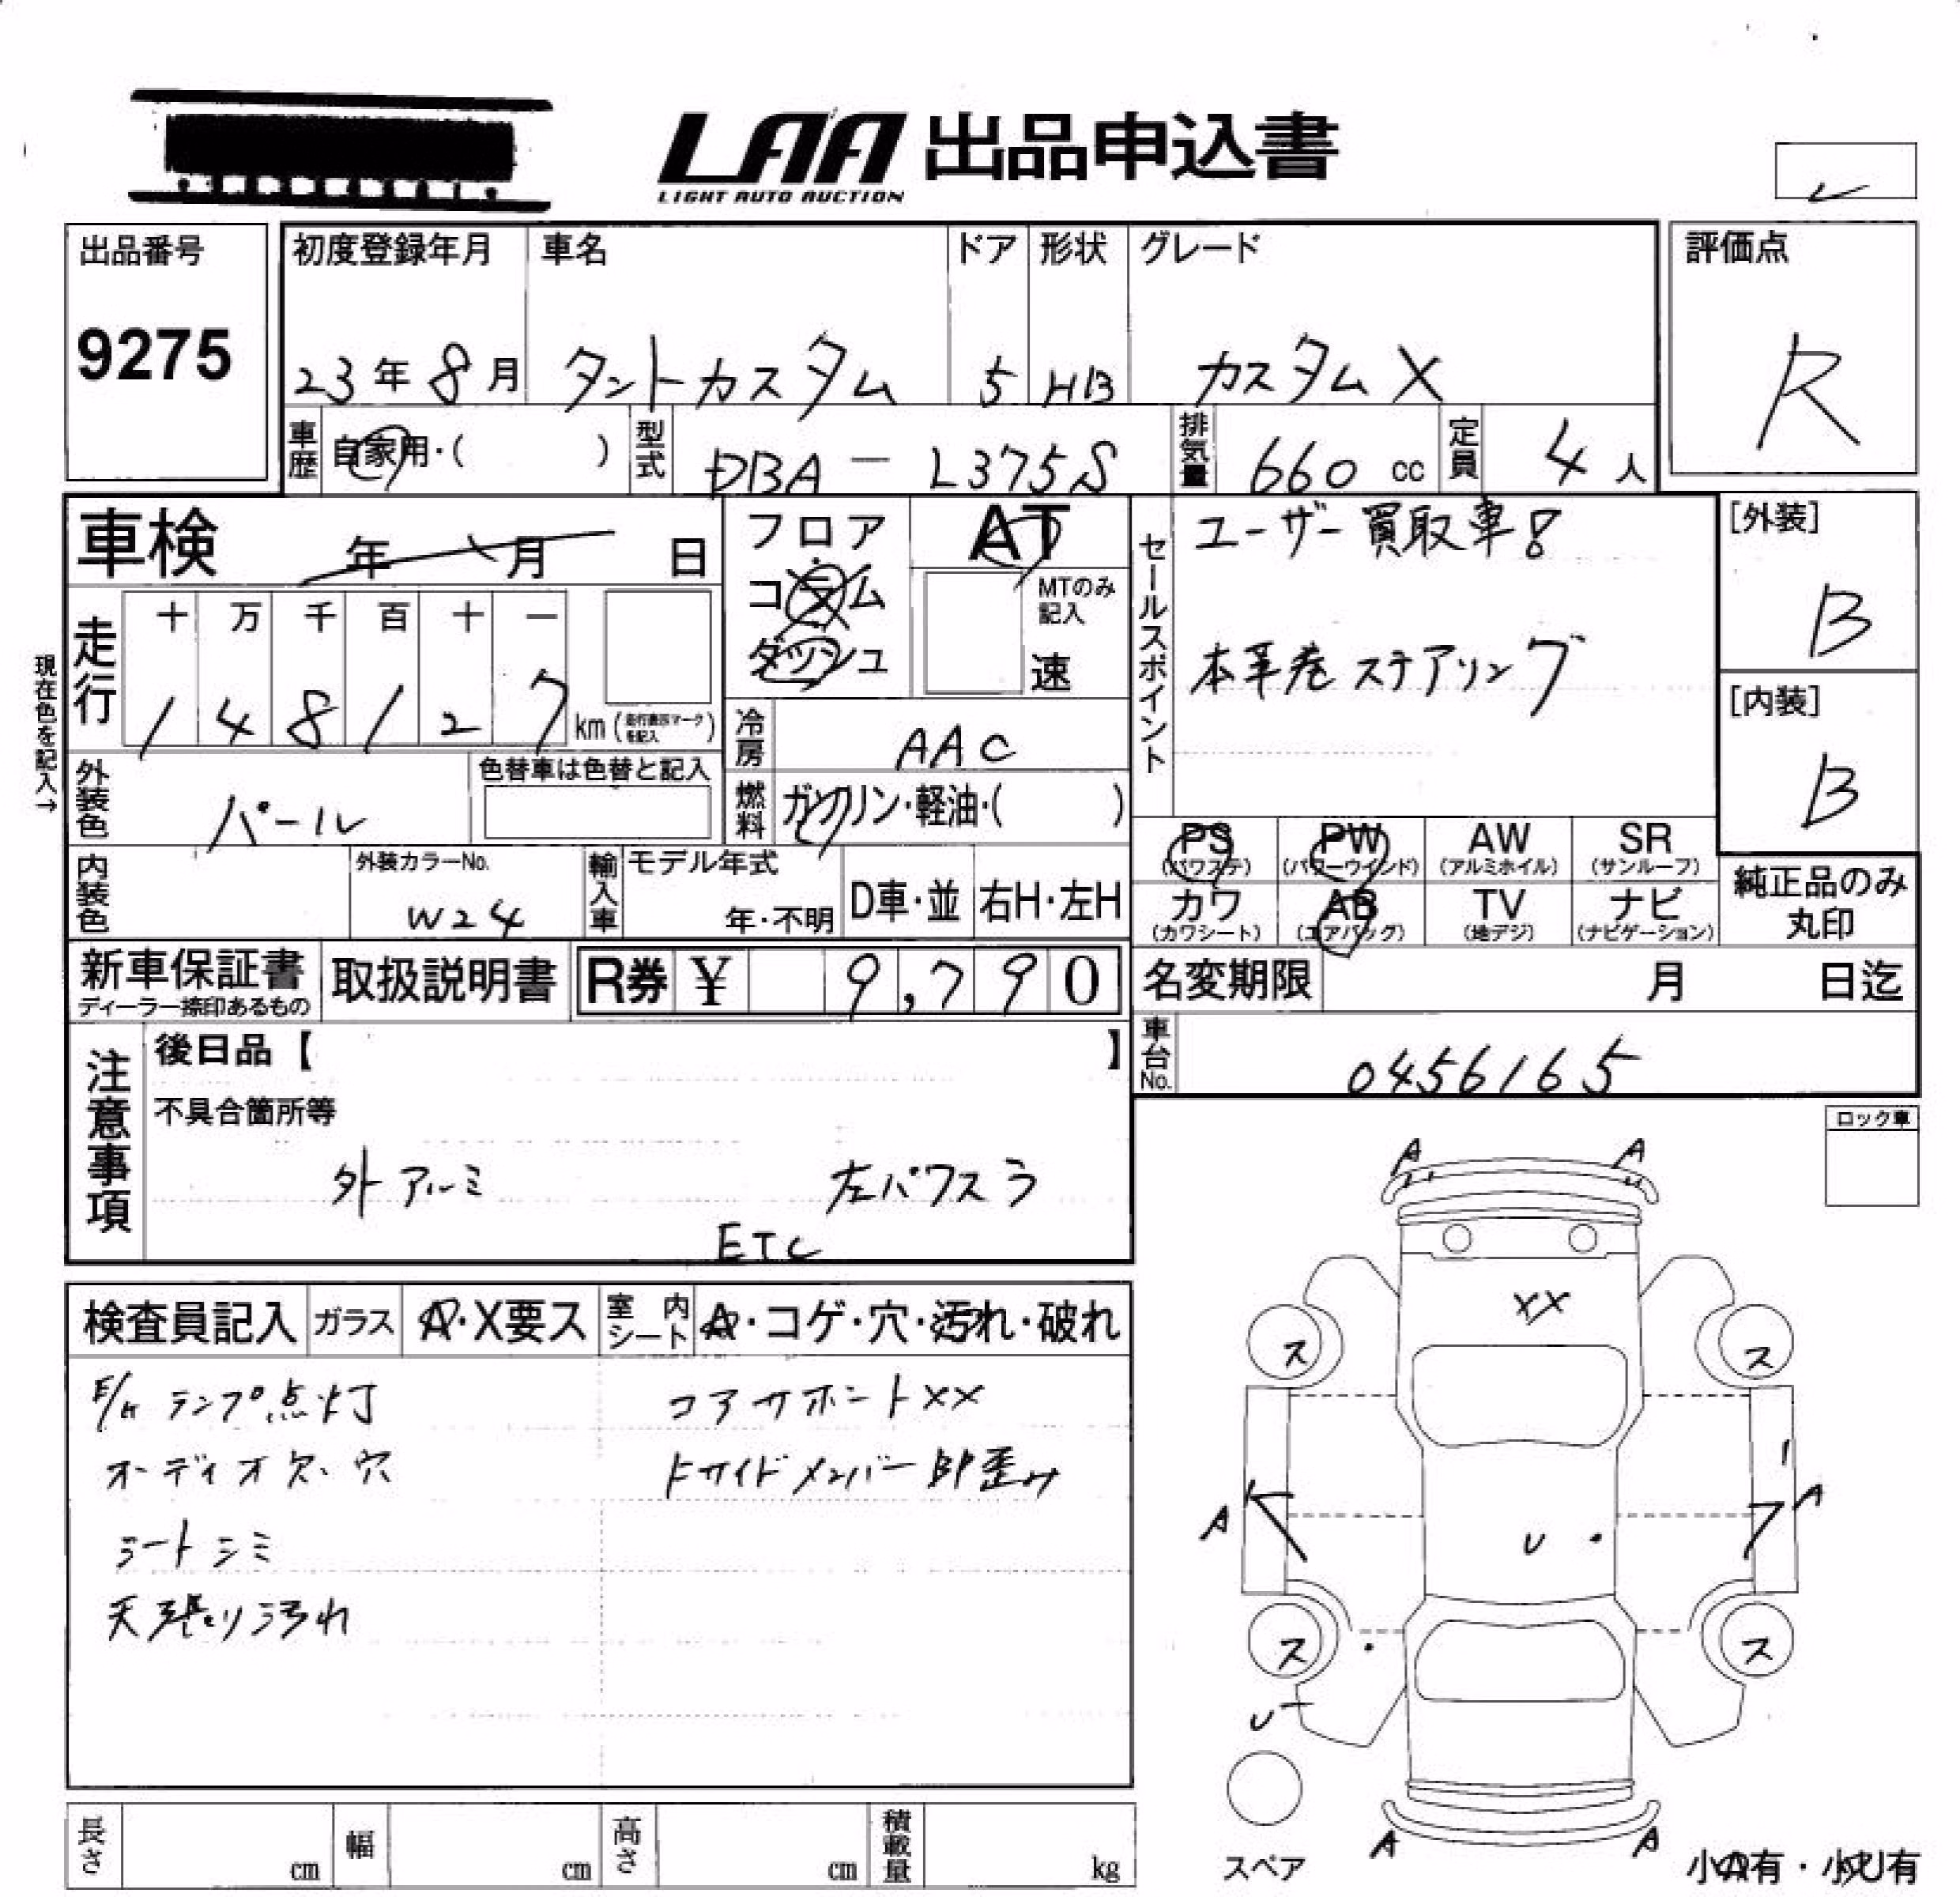 LAA 出品申込書
LIGHT AUTO AUCTION
出品番号
9275
初度登録年月
23年8月
車名
タントカスタム
ドア
5
形状
HB
グレード
カスタムX
評価点
R
車歴
自家用・( )
型式
DBA - L375S
排気量
660 cc
定員
4人
車検 年 月 日
フロア
コラム
ダッシュ
AT
MTのみ記入
速
セールスポイント
ユーザー買取車!
本革巻ステアリング
[外装]
B
[内装]
B
現在色を記入→
走行
十 万 千 百 十 一
1 4 8 1 2 7 km (走行表示マークを記入)
冷房
AAC
燃料
ガソリン・軽油・( )
外装色
パール
色替車は色替と記入
内装色
外装カラーNo.
W24
輸入車
モデル年式
年・不明
D車・並
右H・左H
PS (パワステ)
PW (パワーウインド)
AW (アルミホイル)
SR (サンルーフ)
カワ (カワシート)
AB (エアバッグ)
TV (地デジ)
ナビ (ナビゲーション)
純正品のみ
丸印
新車保証書
ディーラー捺印あるもの
取扱説明書
R券 ¥ 9,790
名変期限 月 日迄
車台No.
0456165
注意事項
後日品【 】
不具合箇所等
外アルミ 左パワスラ
ETC
ロック車
検査員記入
ガラス
A・X要ス
室内シート
A・コゲ・穴・汚れ・破れ
ランプ点灯
コアサポートXX
オーディオ欠、穴
Fサイドメンバー 歪み
シートシミ
天張り汚れ
A A
XX
ス ス
A A
U
ス ス
U
スペア
A A
小A有・小U有
長さ cm
幅 cm
高さ cm
積載量 kg